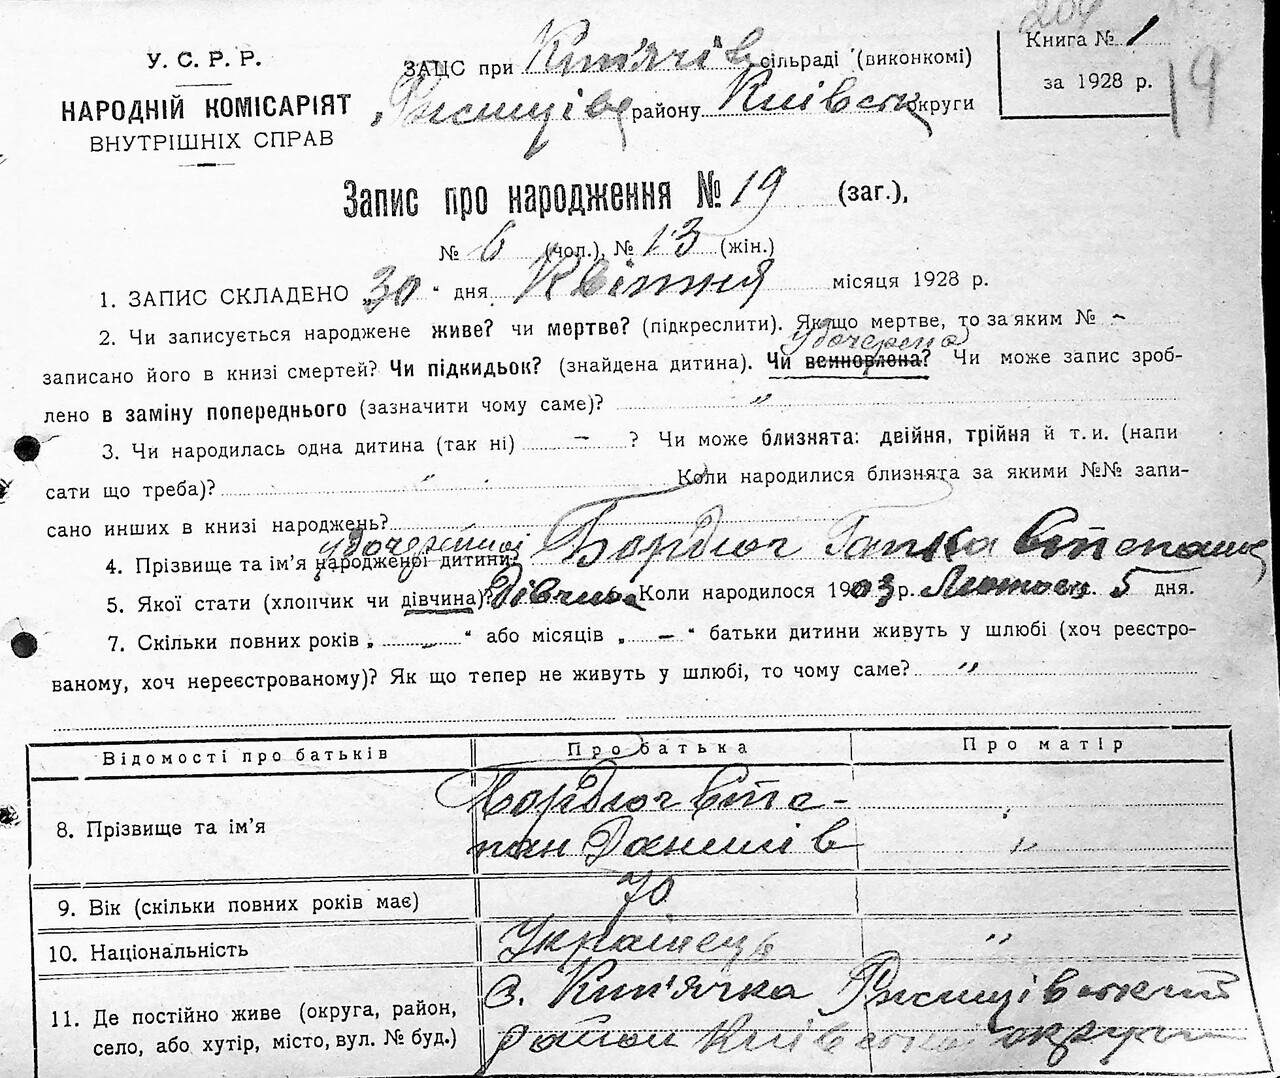 204
У. С. Р. Р.
НАРОДНІЙ КОМІСАРІЯТ
ВНУТРІШНІХ СПРАВ
ЗАЦС при Кип'ячів сільраді (виконкомі)
Ржищівс району Київськ округи
Книга № 1
за 1928 р.
19
Запис про народження № 19 (заг.),
№ 6 (чол.), № 13 (жін.)
1. ЗАПИС СКЛАДЕНО „30" дня Квітня місяця 1928 р.
2. Чи записується народжене живе? чи мертве? (підкреслити). Як що мертве, то за яким № -
удочерена
записано його в книзі смертей? Чи підкидьок? (знайдена дитина). Чи всиновлена? Чи може запис зроб-
лено в заміну попереднього (зазначити чому саме)? "
3. Чи народилась одна дитина (так ні) - ? Чи може близнята: двійня, трійня й т. и. (напи
сати що треба)? " Коли народилися близнята за якими №№ запи-
сано инших в книзі народжень?
удочереної
4. Прізвище та ім'я народженої дитини? Бордюг Гапка Степанів
5. Якої стати (хлопчик чи дівчина)? Дівчина 6. Коли народилося 1903 р. Лютого 5 дня.
7. Скільки повних років „ " або місяців „ - " батьки дитини живуть у шлюбі (хоч реєстро-
ваному, хоч нереєстрованому)? Як що тепер не живуть у шлюбі, то чому саме? "
Відомості про батьків Про батька Про матір
8. Прізвище та ім'я Бордюг Сте-
пан Данилів "
9. Вік (скільки повних років має) 70
10. Національність Українець "
11. Де постійно живе (округа, район, с. Кип'ячка Ржищівський
село, або хутір, місто, вул. № буд.) район Київської округи